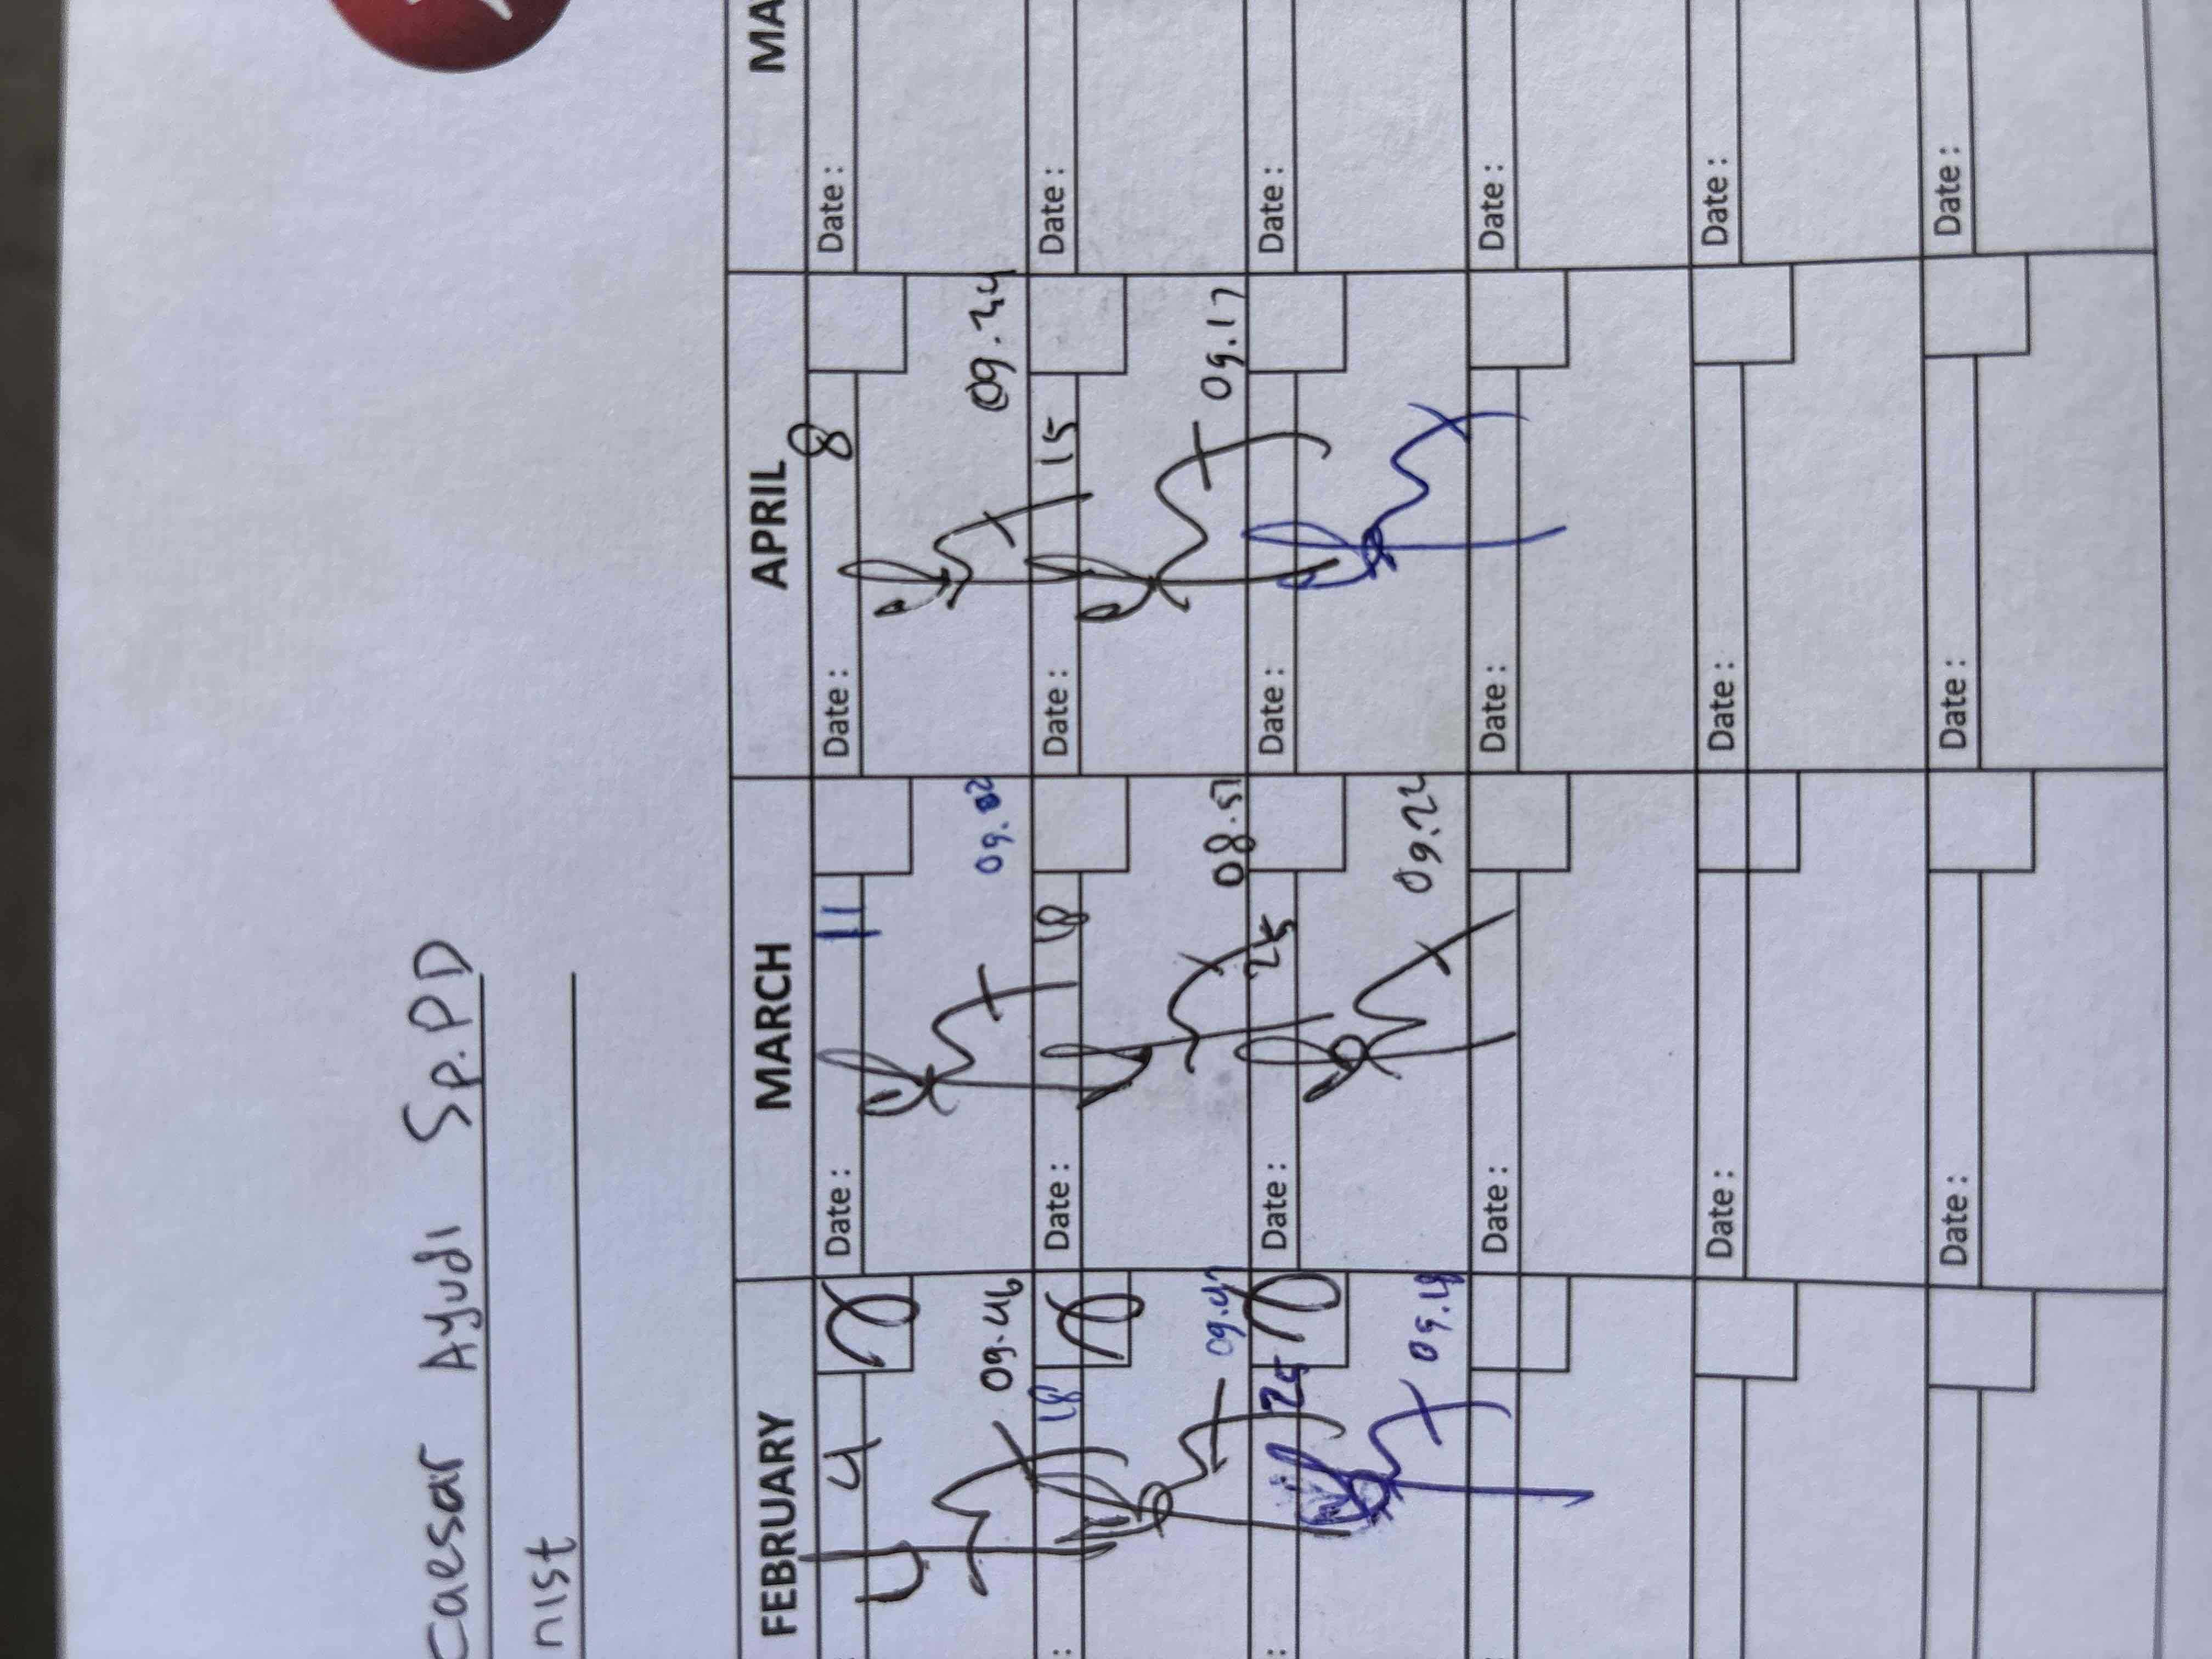 Caesar Ayudi Sp.PD
nist
FEBRUARY MARCH APRIL MA
4 Date: 11 Date: 8 Date:
09.46 09.02 09.24
: 18 Date: 18 Date: 15 Date:
09.47 08.57 09.17
: 25 Date: 25 Date: Date:
09.18 09.22
Date: Date: Date:
Date: Date: Date:
Date: Date: Date: